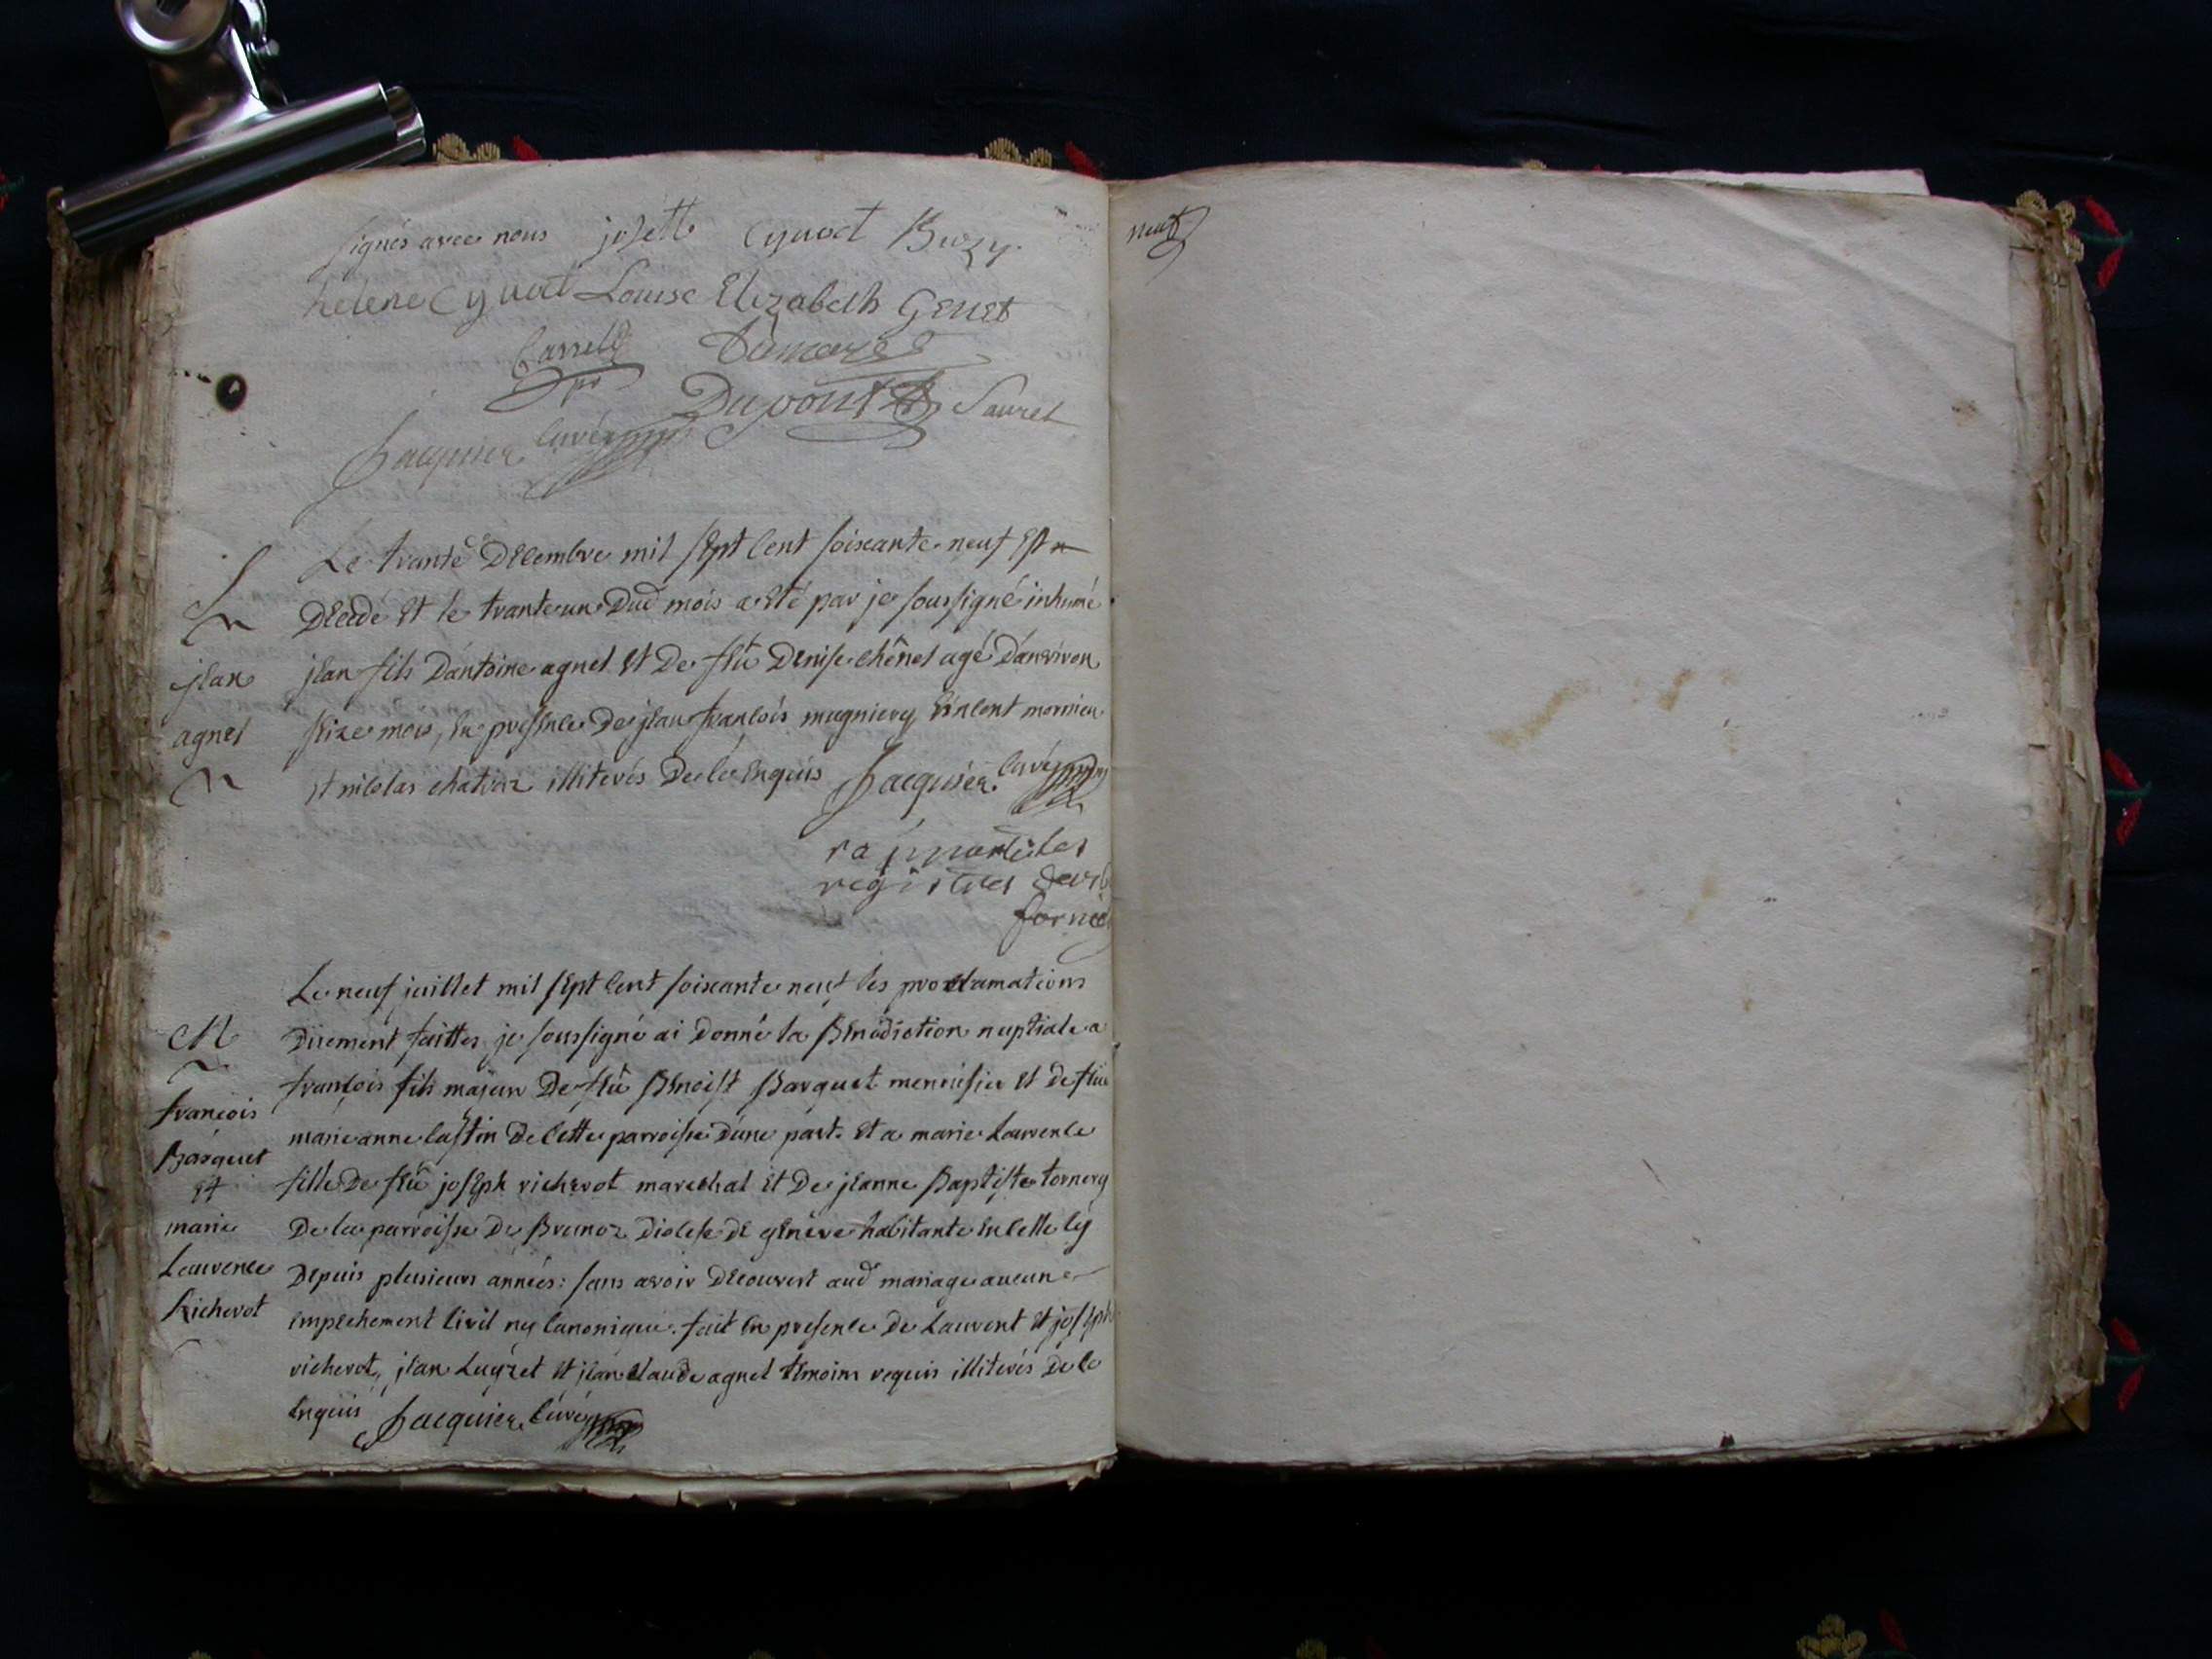 signés avec nous josette Cynoct Buzy
helene Cynoct Louise Elizabeth Genet
Dumarest
Dupont Sauret
Jacquier curé
Le trante Decembre mil sept cent soixante neuf est
Decedé et le trante un Dud mois a eté par je soussigné inhumé
jean
agnel
jean fils D'antoine agnel et De feû Denise chênel agé D'anviron
seize mois, en presence De jean françois mugniery vincent mornieu
et nicolas chatron illiterés De ce enquis Jacquier curé
raporté les
registres
le neuf juillet mil sept cent soixante neuf les proclamations
M
Düement faittes je soussigné ai Donné la Benediction nuptiale a
françois
Barquet
et
marie
Laurence
Richerot
françois fils majeur De feû Benoist Barquet mennisier et De feüe
marie anne castin De cette parroisse D'une part. et a marie Laurence
fille De feû joseph richerot marechal et De jeanne Baptiste tornery
De la parroisse De Brenoz Diocese de genève habitante en celle cy
Depuis plusieurs années: sans avoir Decouvert aud mariage aucun
empechement civil ny canonique. fait en presence De Laurent et joseph
richerot, jean Luyzet et jean claude agnel temoins requis illiterés De ce
enquis Jacquier curé
neuf